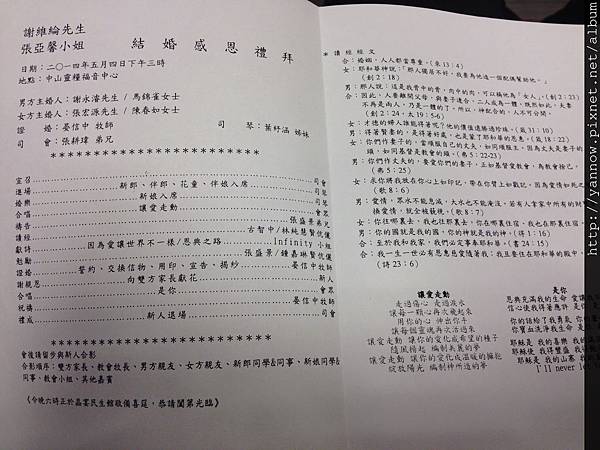 謝維綸先生
張亞馨小姐
結婚感恩禮拜
日期：二○一四年五月四日下午三時
地點：中山靈糧福音中心
男方主婚人：謝永濬先生 / 馬錦雀女士
女方主婚人：張宏源先生 / 陳春如女士
證　婚：晏信中 牧師
司　琴：葉紓涵 姊妹
司　會：張耕瑋 弟兄
************************
宣召......司會
進場......新郎、伴郎、花童、伴娘入席......司琴
婚樂......新娘入席......司琴
合唱......讓愛走動......會眾
禱告......張盛景弟兄
讀經......古智中/林純慧賢伉儷
獻詩......因為愛讓世界不一樣/恩典之路......Infinity 小組
勉勵......張盛景/鍾嘉琳賢伉儷
證婚......誓約、交換信物、用印、宣告、揭紗......晏信中牧師
謝親恩......向雙方家長獻花......新人
合唱......是你......會眾
祝禱......晏信中牧師
禮成......新人退場......司會
************************
會後請留步與新人合影
合影順序：雙方家長、教會牧長、男方親友、女方親友、新郎同學&同事、新娘同學&
同事、教會小組、其他嘉賓
《今晚六時正於晶宴民生館敬備喜筵，恭請闔第光臨》
* 讀經經文
合：婚姻，人人都當尊重。(來 13：4)
女：耶和華神說：「那人獨居不好，我要為他造一個配偶幫助他。」
(創 2：18)
男：那人說：這是我骨中的骨，肉中的肉，可以稱他為「女人」。(創 2：23)
合：因此，人要離開父母，與妻子連合，二人成為一體。既然如此，夫妻
不再是兩人，乃是一體的了。所以，神配合的，人不可分開。
(創 2：24，太 19：5-6)
女：才德的婦人誰能得著呢？他的價值遠勝過珍珠。(箴 31：10)
男：得著賢妻的，是得著好處，也是蒙了耶和華的恩惠。(箴 18：22)
女：你們作妻子的，當順服自己的丈夫，如同順服主。因為丈夫是妻子的
頭，如同基督是教會的頭。(弗 5：22-23)
男：你們作丈夫的，要愛你們的妻子，正如基督愛教會，為教會捨己。
(弗 5：25)
女：求你將我放在你心上如印記，帶在你臂上如戳記。因為愛情如死之
(歌 8：6)
男：愛情，眾水不能息滅，大水也不能淹沒。若有人拿家中所有的財
換愛情，就全被藐視。(歌 8：7)
女：你往哪裏去，我也往那裏去，你在哪裏住宿，我也在那裏住宿。
男：你的國就是我的國，你的神就是我的神。(得 1：16)
合：至於我和我家，我們必定事奉耶和華。(書 24：15)
合：我一生一世必有恩惠慈愛隨著我；我且要住在耶和華的殿中，
(詩 23：6)
讓愛走動
走過傷心 走過淚水
讓每一顆心再次飛起來
用你的心 伸出你手
讓每個靈魂再次活過來
讓愛走動 讓你的愛化成希望的種子
隨風揚起 編制美麗的夢
讓愛走動 讓你的愛化成溫暖的擁抱
綻放陽光 編制神所造的夢
是你
恩典充滿我的生命 愛讓我
信心使我得著應許 是你
你的話給了我勇氣 你的
你寶血洗淨我生命 是
耶穌 是我的喜樂 我的
耶穌使 我得豐盛
耶穌 是我的山寨 我的
I'll never let
http://yannow.pixnet.net/album